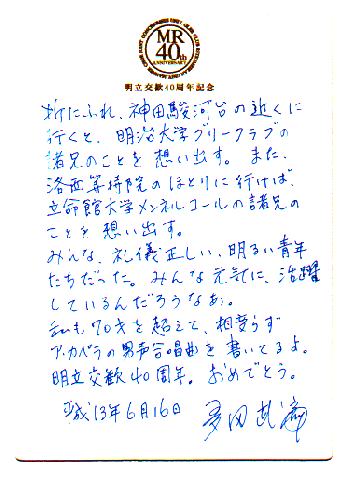 MR
40th
ANNIVERSARY
明立交歓40周年記念
折にふれ、神田駿河台の近くに
行くと、明治大学グリークラブの
諸兄のことを想い出す。また、
洛西等持院のほとりに行けば、
立命館大学メンネルコールの諸兄の
ことを想い出す。
みんな、礼儀正しい、明るい青年
たちだった。みんな元気に、活躍
しているんだろうなあ。
私も70才を超えて、相変らず
アカペラの男声合唱曲を書いてるよ。
明立交歓40周年。おめでとう。
平成13年6月16日 多田武彦